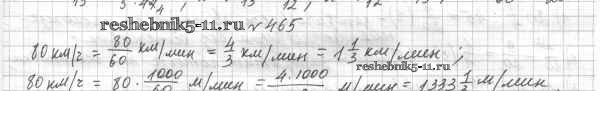 15 3·4 4 15 12
reshebnik5-11.ru №465
80 км/ч = 80/60 км/мин = 4/3 км/мин = 1 1/3 км/мин ;
reshebnik5-11.ru
80 км/ч = 80 · 1000/60 м/мин = 4·1000/ м/мин = 1333 1/3 м/мин